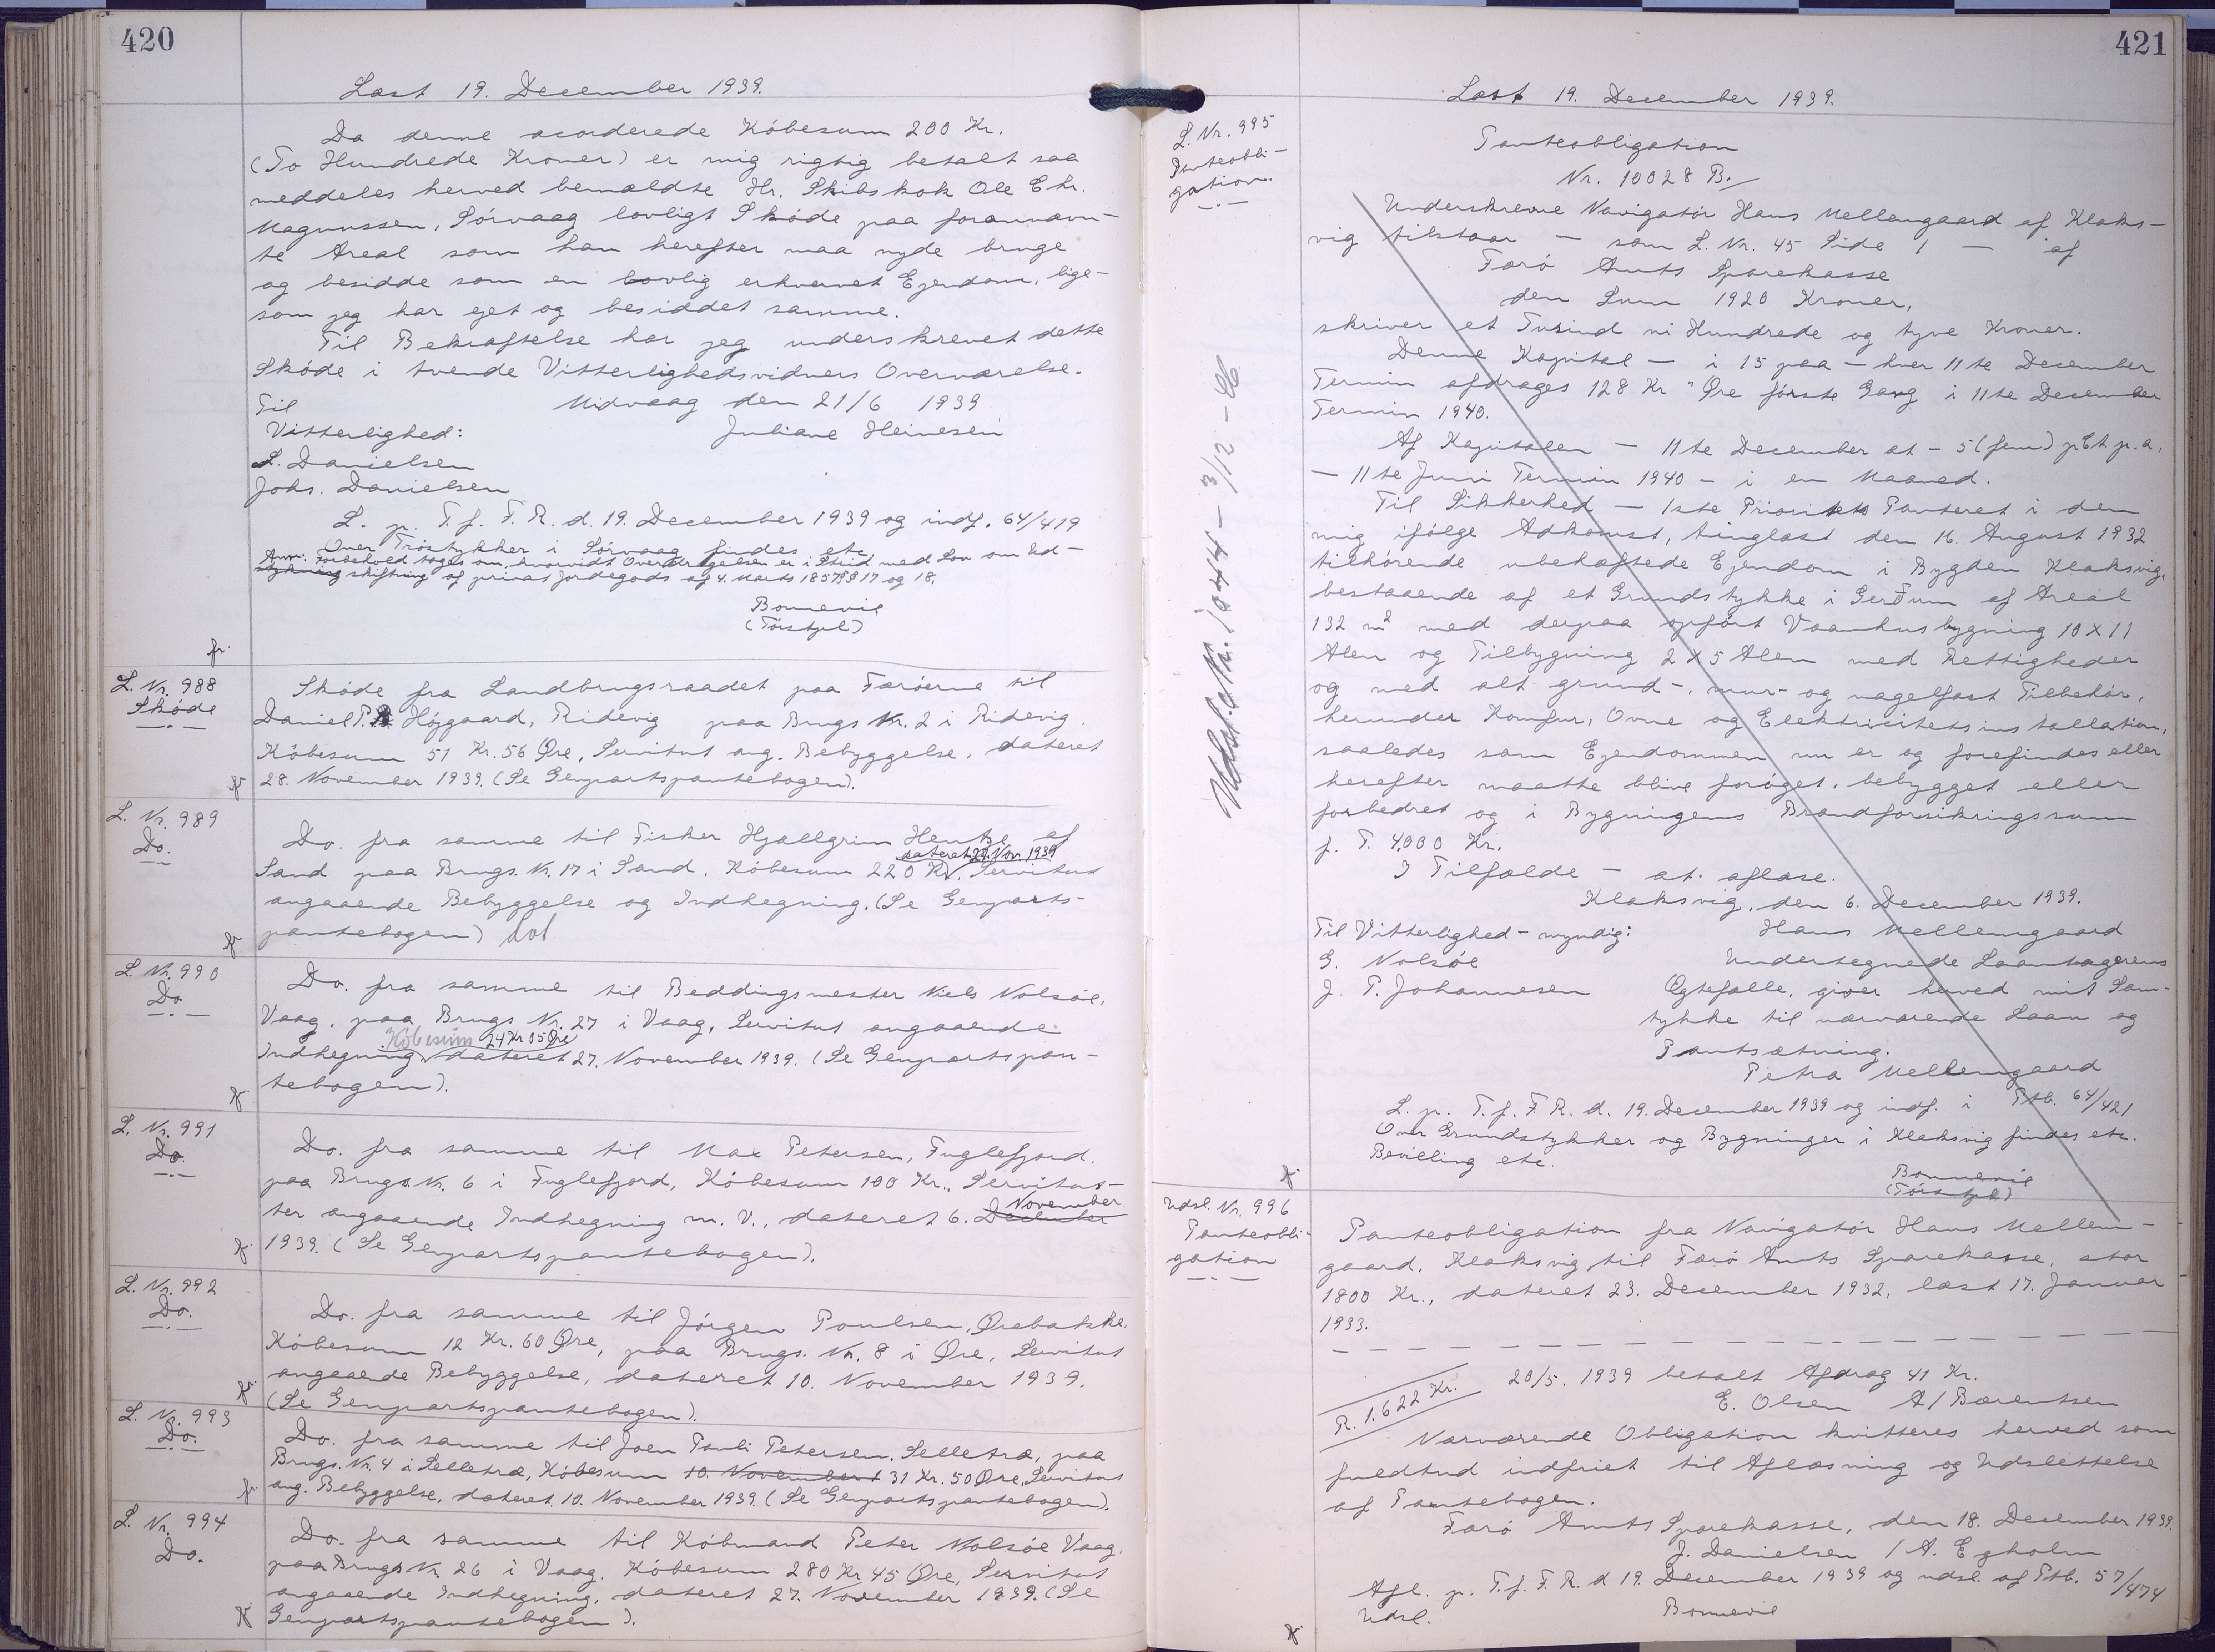 420
Læst 19. December 1939.
Da denne acorderede Köbesum 200 Kr.
(To Hundrede Kroner) er mig rigtig betalt saa
meddeles herved bemældte Hr. Skibskok Ole Chr.
Magnussen, Sörvaag lovligt Sköde paa forannævn-
te Areal som han herefter maa nyde bruge
og besidde som en lovlig erhvervet Ejendom, lige-
som jeg har ejet og besiddet samme.
Til Bekræftelse har jeg underskrevet dette
Sköde i tvende Vitterlighedsvidners Overværelse.
Til Midvaag den 21/6 1939
Vitterlighed: Juliane Heinesen
S. Danielsen
Johs. Danielsen
L. p. T. f. F. R. d. 19. December 1939 og indf. 64/419
Over Tröstykker i Sörvaag findes etc.
Anm: Forbehold tages om, hvorvidt Overdragelsen er i Strid med Lov om Ud-
stykning skiftning af privat Jordegods af 4. Marts 1857 §§ 17 og 18.
Bonnevie
(Törstzel)
fr.
L. Nr. 988
Sköde
Sköde fra Landbrugsraadet paa Færöerne til
Daniel P. Höjgaard, Ridevig paa Brugs Nr. 2 i Ridevig.
Köbesum 51 Kr. 56 Øre, Servitut ang. Bebyggelse, dateret
28. November 1939. (Se Genpartspantebogen).
L. Nr. 989
Do.
Do. fra samme til Fisker Hjallgrim Hentze af
dateret 27. Nov. 1939
Sand paa Brugs. Nr. 17 i Sand. Köbesum 220 Kr. Servitut
angaaende Bebyggelse og Indhegning. (Se Genparts-
pantebogen)
L. Nr. 990
Do
Do. fra samme til Beddingsmester Niels Nolsöe,
Vaag, paa Brugs Nr. 27 i Vaag, Servitut angaaende
Köbesum 24 Kr 05 Øre
Indhegning, dateret 27. November 1939. (Se Genpartspan-
tebogen).
L. Nr. 991
Do.
Do. fra samme til Max Petersen, Fuglefjord.
paa Brugs. Nr. 6 i Fuglefjord, Köbesum 100 Kr., Servitut-
November
ter angaaende Indhegning m. V., dateret 6. December
1939. (Se Genpartspantebogen).
L. Nr. 992
Do.
Do. fra samme til Jörgen Poulsen, Ørebakke.
Köbesum 12 Kr. 60 Øre, paa Brugs. Nr. 8 i Øre, Servitut
angaaende Bebyggelse, dateret 10. November 1939.
(Se Genpartspantebogen).
L. Nr. 993
Do.
Do. fra samme til Joen Pauli Petersen, Selletræ, paa
Brugs. Nr. 4 i Selletræ, Köbesum 10. November 1 31 Kr. 50 Øre, Servitut
ang. Bebyggelse, dateret. 10. November 1939. (Se Genpartspantebogen).
L. Nr. 994
Do.
Do. fra samme til Köbmand Peter Nolsöe Vaag.
paa Brugs Nr. 26 i Vaag. Köbesum 280 Kr 45 Øre, Servitut
angaaende Indhegning, dateret 27. November 1939. (Se
Genpartspantebogen).
421
Læst 19. December 1939.
L. Nr. 995
Panteobli-
gation.
Panteobligation
Nr. 10028 B.
Underskrevne Navigatör Hans Mellemgaard af Klaks-
vig tilstaar — som L. Nr. 45 Side 1 — af
Færö Amts Sparekasse
den Sum 1920 Kroner,
skriver et Tusind ni Hundrede og tyve Kroner.
Denne Kapital — i 15 paa — hver 11te December
Termin afdrages 128 Kr " Øre förste Gang i 11te December
Termin 1940.
Af Kapitalen — 11te December at — 5 (fem) pCt p. a.
— 11te Juni Termin 1940 — i en Maaned.
Til Sikkerhed — 1ste Prioritets Panteret i den
mig ifölge Adkomst, tinglæst den 16. August 1932
tilhörende ubehæftede Ejendom i Bygden Klaksvig,
bestaaende af et Grundstykke i Gerðum af Areal
132 m² med derpaa opfört Vaanhusbygning 10 x 11
Alen og Tilbygning 2 x 5 Alen med Rettigheder
og med alt grund-, mur- og nagelfast Tilbehör,
herunder Komfur, Ovne og Elektricitetsinstallation,
saaledes som Ejendommen nu er og forefindes eller
herefter maatte blive foröget, bebygget eller
forbedret og i Bygningens Brandforsikringssum
f. T. 4000 Kr.
I Tilfælde — at aflæse.
Klaksvig, den 6. December 1939.
Til Vitterlighed — myndig: Hans Mellemgaard
G. Nolsöe Undertegnede Laantagerens
J. P. Johannesen Ægtefælle, giver herved mit Sam-
tykke til nærværende Laan og
Pantsætning.
Petra Mellemgaard
L. p. T. f. F R. d. 19. December 1939 og indf. i Ptb. 64/421
Over Grundstykker og Bygninger i Klaksvig findes etc.
Bevilling etc.
Bonnevie
(Törstzel)
Udsl. L. Nr. 1044 — 3/12 -
Udsl. Nr. 996
Panteobli-
gation
Panteobligation fra Navigatör Hans Mellem-
gaard, Klaksvig til Færö Amts Sparekasse, stor
1800 Kr., dateret 23. December 1932, læst 17. Januar
1933.
R. 1.622 Kr.
20/5. 1939 betalt Afdrag 41 Kr.
E. Olsen A/ Bærentsen
Nærværende Obligation kvitteres herved som
fuldtud indfriet til Aflæsning og Udslettelse
af Pantebogen.
Færö Amts Sparekasse, den 18. December 1939.
J. Danielsen / A. Egholm
Afl. p. T. f. F. R. d 19. December 1939 og udsl. af Ptb. 57/474
Udsl. Bonnevie